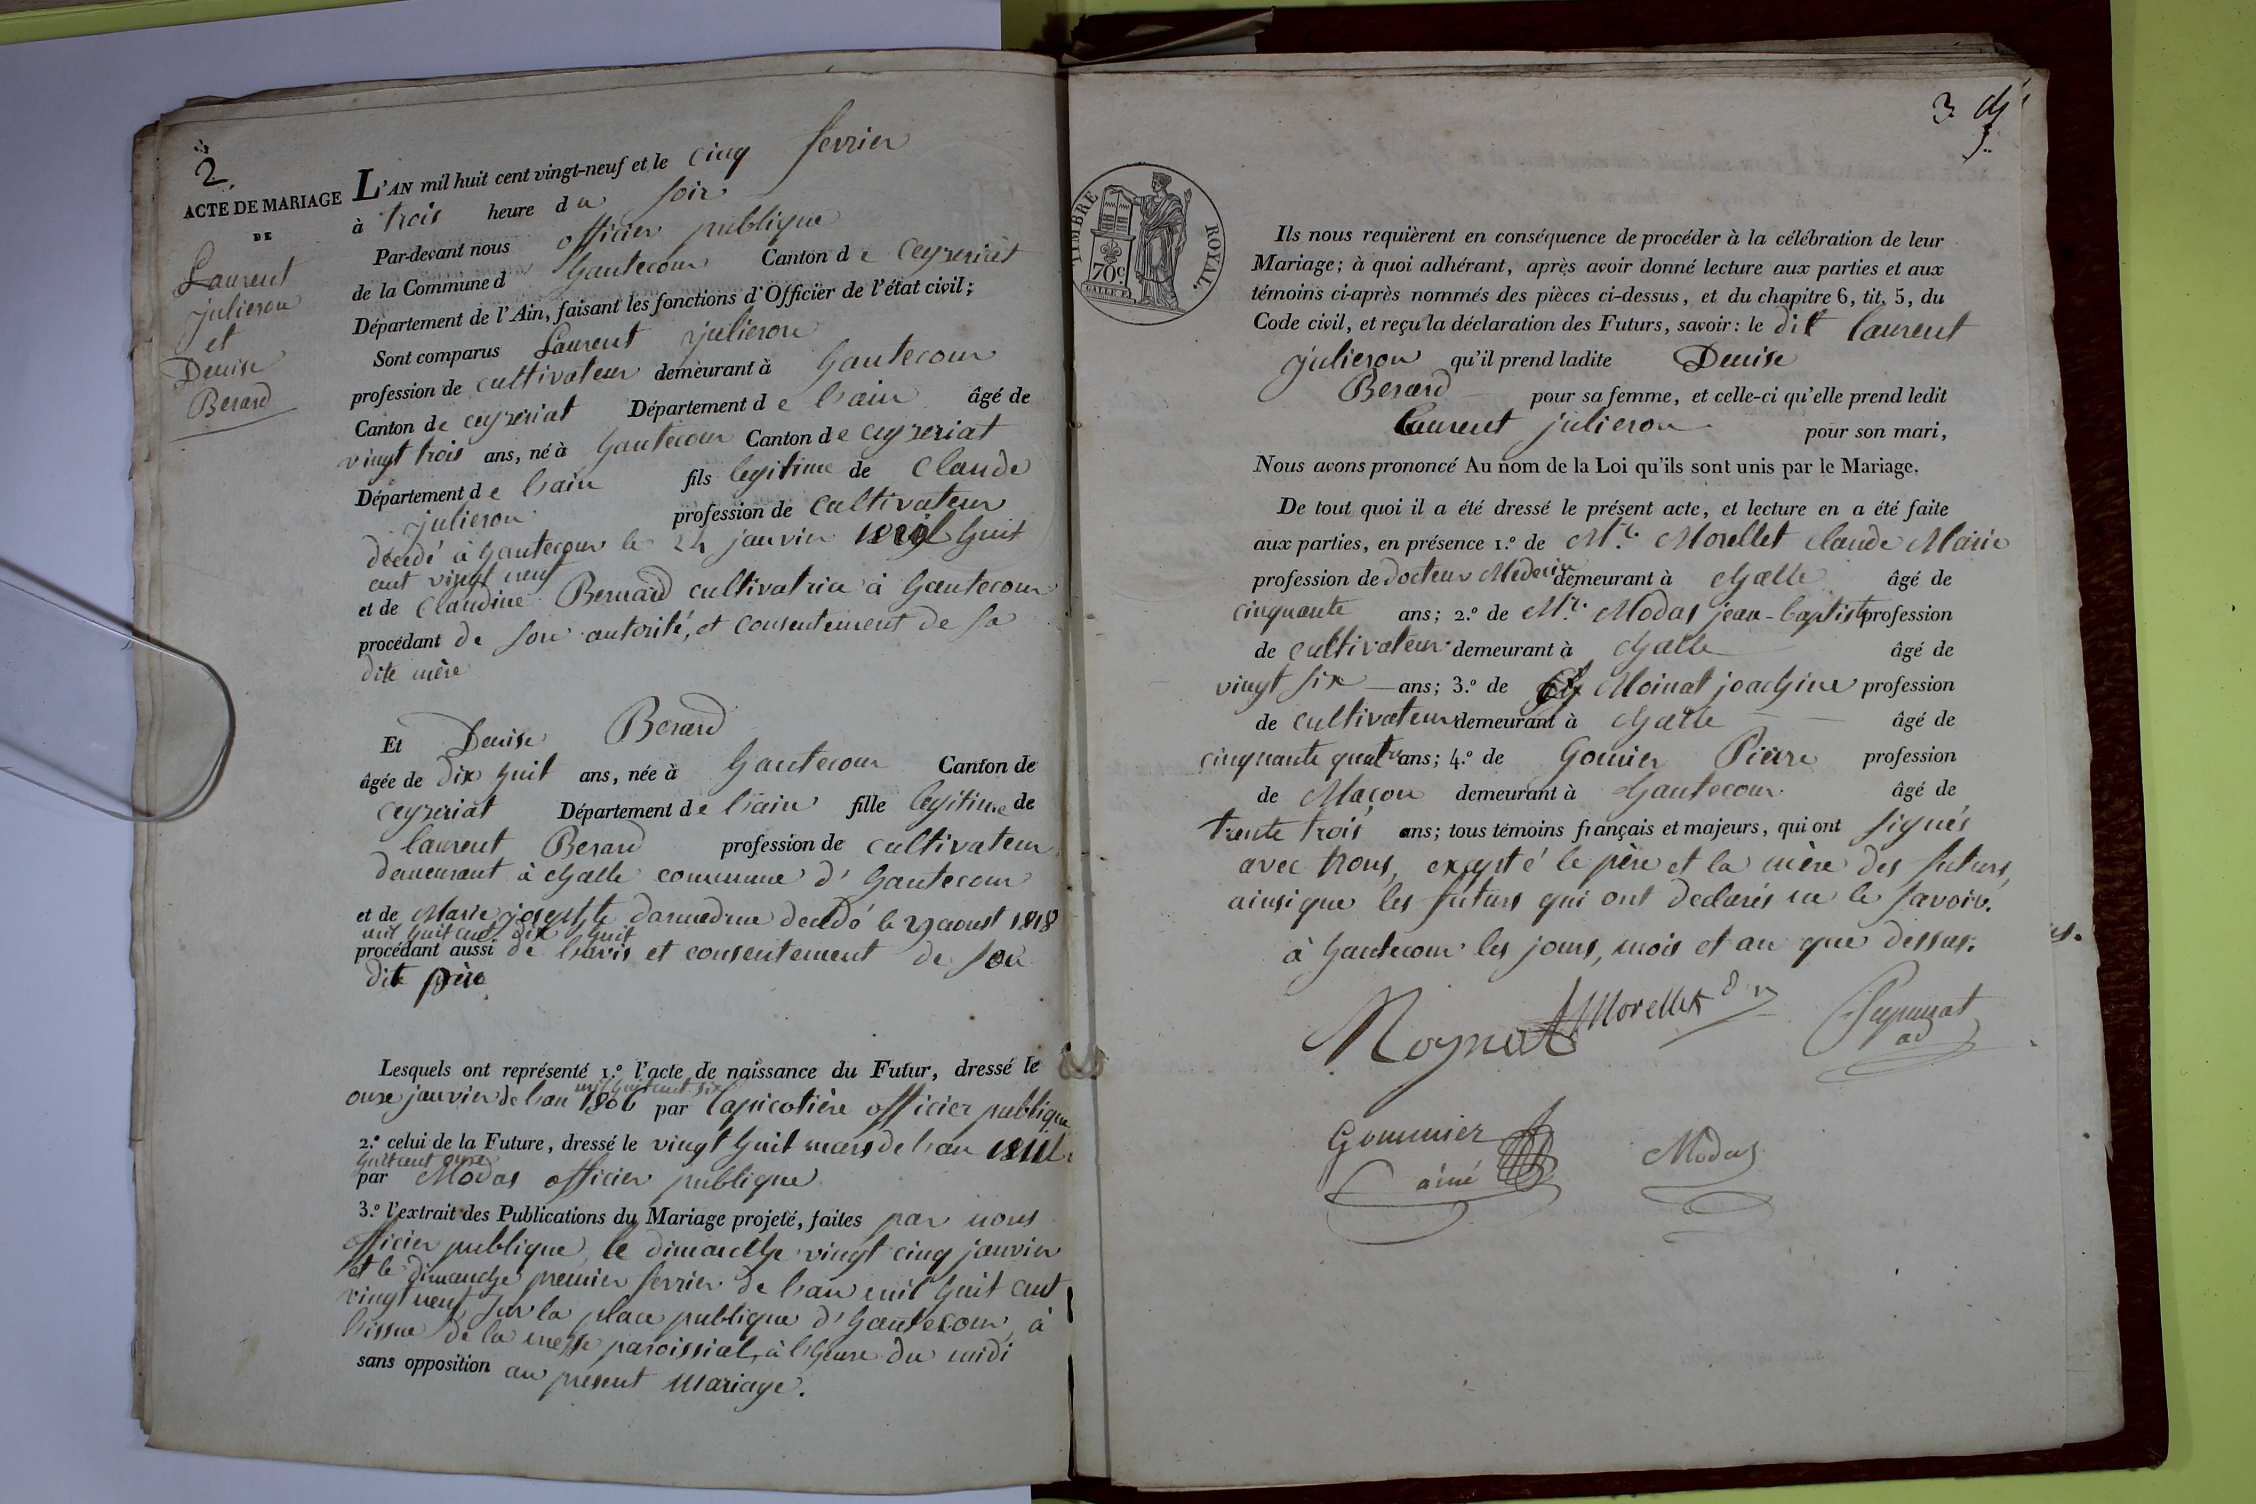 2.
ACTE DE MARIAGE
DE
Laurent
julieron
et
Denise
Berard
L'AN mil huit cent vingt-neuf et le cinq fevrier
à trois heure du soir
Par-devant nous officier publique
de la Commune d hautecour Canton de Ceyzeriat
Département de l'Ain, faisant les fonctions d'Officier de l'état civil;
Sont comparus Laurent julieron
profession de cultivateur demeurant à hautecour
Canton de ceyzeriat Département de l'ain âgé de
vingt trois ans, né à hautecour Canton de ceyzeriat
Département de l'ain fils legitime de Claude
julieron profession de cultivateur
décédé à hautecour le 24 janvier huit
cent vingt neuf
et de Claudine Bernard cultivatrice à hautecour
procédant de son autorité, et consentement de sa
dite mère
Et Denise Berard
âgée de dix huit ans, née à hautecour Canton de
ceyzeriat Département de l'ain fille legitime de
laurent Berard profession de cultivateur
demeurant à challe commune d'hautecour
et de Marie josephte decedé le 29 aoust 1818
mil huit cent dix huit
procédant aussi de l'avis et consentement de son
dit père
Lesquels ont représenté 1.º l'acte de naissance du Futur, dressé le
mil huit cent six
onze janvier de l'an 1806 par lapicotière officier publique
2.º celui de la Future, dressé le vingt huit mars de l'an
huit cent onze
par Modas officier publique
3.º l'extrait des Publications du Mariage projeté, faites par nous
officier publique le dimanche vingt cinq janvier
et le dimanche premier fevrier de l'an mil huit cent
vingt neuf sur la place publique d'hautecour, à
l'issue de la messe paroissial, à l'heure du midi
sans opposition au present mariage.
3
TIMBRE ROYAL.
70c
Ils nous requièrent en conséquence de procéder à la célébration de leur
Mariage; à quoi adhérant, après avoir donné lecture aux parties et aux
témoins ci-après nommés des pièces ci-dessus, et du chapitre 6, tit. 5, du
Code civil, et reçu la déclaration des Futurs, savoir: le dit laurent
julieron qu'il prend ladite Denise
Berard pour sa femme, et celle-ci qu'elle prend ledit
Laurent julieron pour son mari,
Nous avons prononcé Au nom de la Loi qu'ils sont unis par le Mariage.
De tout quoi il a été dressé le présent acte, et lecture en a été faite
aux parties, en présence 1.º de Mr. Morellet Claude Marie
profession de docteur Medecin demeurant à challe âgé de
cinquante ans; 2.º de Mr. Modas jean-baptiste profession
de cultivateur demeurant à challe âgé de
vingt six ans; 3.º de Moinat joachine profession
de cultivateur demeurant à challe âgé de
cinquante quatre ans; 4.º de Gomier Pierre profession
de Maçon demeurant à hautecour âgé de
trente trois ans; tous témoins français et majeurs, qui ont signés
avec nous, excepté le père et la mère des futurs,
ainsi que les futurs qui ont declarés ne le savoir.
à hautecour les jours, mois et an que dessus.
Morellet
ad
Gommier
ainé
Modas